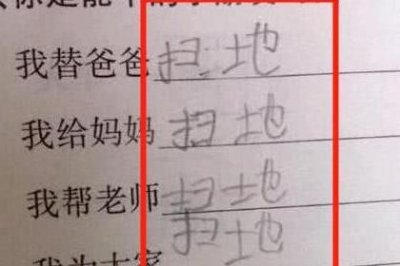 我替爸爸扫地
我给妈妈扫地
我帮老师扫地
我为大家扫地